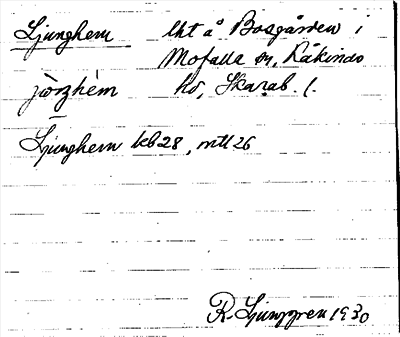 Ljunghem lht å Bosgården i
Mofalla sn, Kåkinds
jòrzhèm hd, Skarab. l.
Ljunghem kb28, mtl26
R. Ljunggren 1930